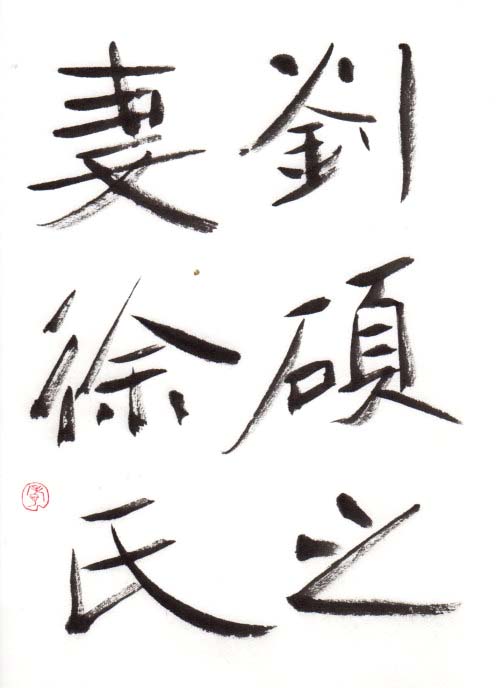 劉碩之
妻徐氏